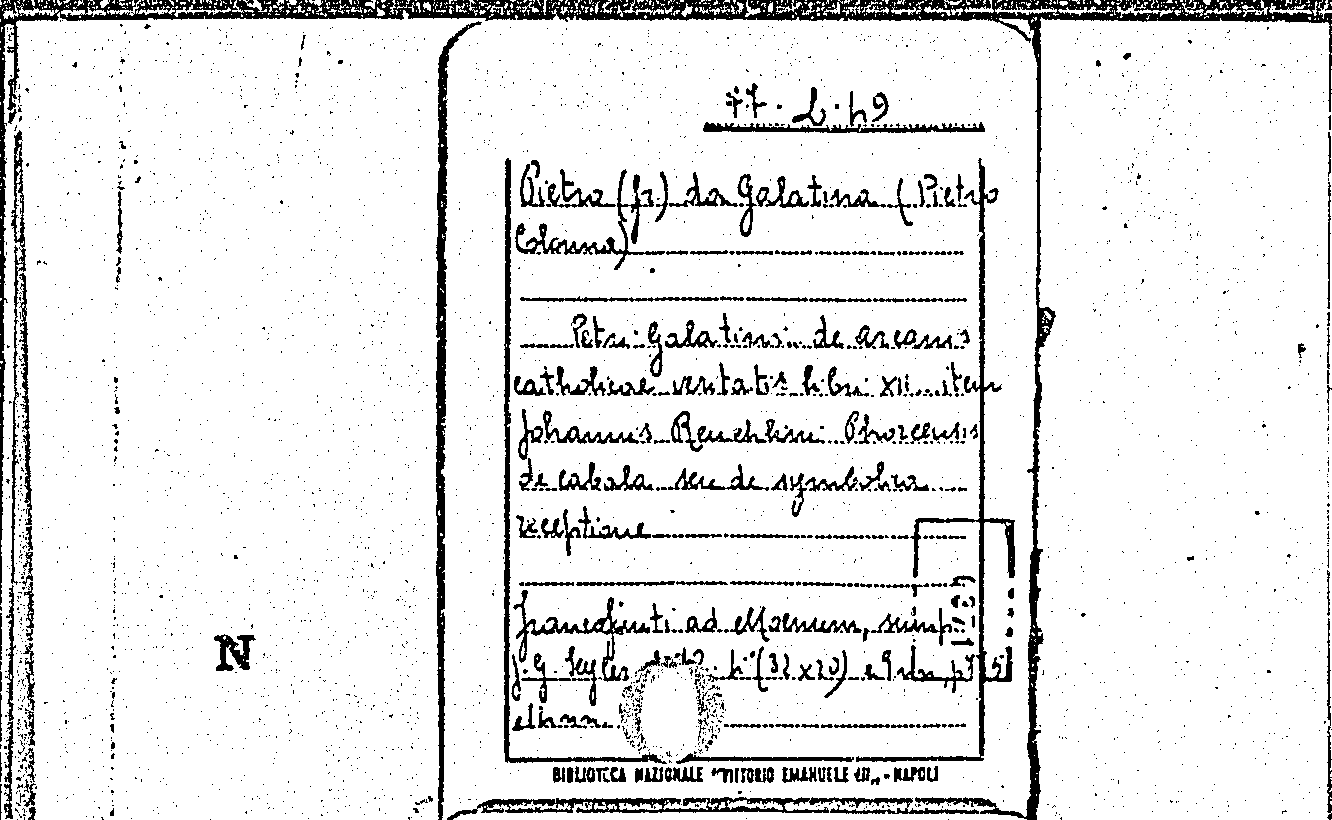 77. L. 49
Pietro (fr.) da Galatina (Pietro
Colonna)
Petri Galatini de arcanis
catholicae veritatis libri XII. item
Johannis Reuchlini Phorcensis
de cabala seu de symbolica
receptione
Francofurti ad Moenum, sump.
J. G. Seyler (32 x 20)
N
BIBLIOTECA NAZIONALE "VITTORIO EMANUELE III" - NAPOLI